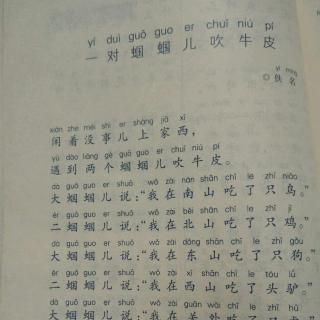 yí duì guō guo er chuī niú pí
一对蝈蝈儿吹牛皮
yì míng
◎佚名
xián zhe méi shì er shàng jiā xī
闲着没事儿上家西，
yù dào liǎng gè guō guo er chuī niú pí
遇到两个蝈蝈儿吹牛皮。
dà guō guo er shuō wǒ zài nán shān chī le zhī niǎo
大蝈蝈儿说：“我在南山吃了只鸟。”
èr guō guo er shuō wǒ zài běi shān chī le zhī jī
二蝈蝈儿说：“我在北山吃了只鸡。”
dà guō guo er shuō wǒ zài dōng shān chī le zhī gǒu
大蝈蝈儿说：“我在东山吃了只狗。”
èr guō guo er shuō wǒ zài xī shān chī le tóu lǘ
二蝈蝈儿说：“我在西山吃了头驴。”
dà guō guo er shuō wǒ zài guān wài chī le zhī hǔ
大蝈蝈儿说：“我在关外吃了只虎